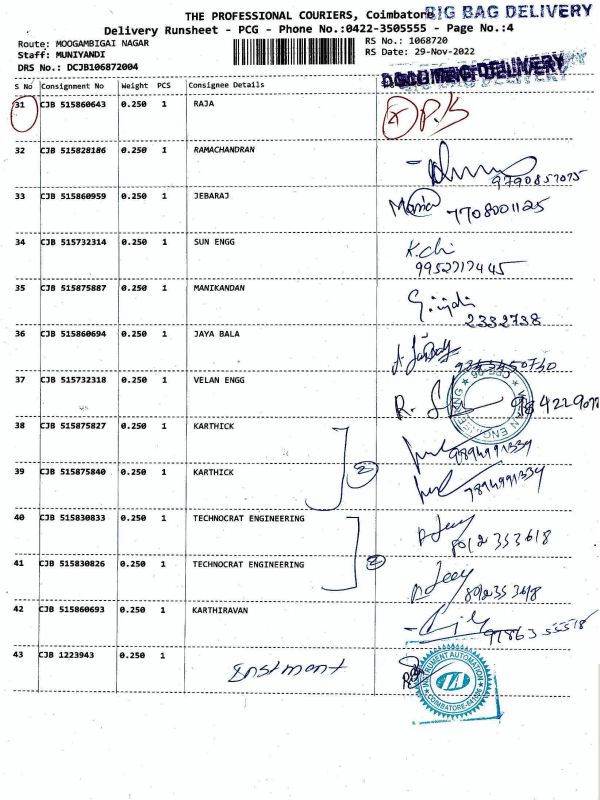 THE PROFESSIONAL COURIERS, Coimbatore
BIG BAG DELIVERY
Delivery Runsheet - PCG - Phone No.:0422-3505555 - Page No.:4
Route: MOOGAMBIGAI NAGAR
RS No.: 1068720
Staff: MUNIYANDI
RS Date: 29-Nov-2022
DRS No.: DCJB106872004
S No Consignment No Weight PCS Consignee Details
31 CJB 515860643 0.250 1 RAJA
32 CJB 515828186 0.250 1 RAMACHANDRAN
9790857075
33 CJB 515860959 0.250 1 JEBARAJ
Maria 7708001125
34 CJB 515732314 0.250 1 SUN ENGG
9952717445
35 CJB 515875887 0.250 1 MANIKANDAN
2332738
36 CJB 515860694 0.250 1 JAYA BALA
37 CJB 515732318 0.250 1 VELAN ENGG
38 CJB 515875827 0.250 1 KARTHICK
39 CJB 515875840 0.250 1 KARTHICK
2
40 CJB 515830833 0.250 1 TECHNOCRAT ENGINEERING
8012353618
41 CJB 515830826 0.250 1 TECHNOCRAT ENGINEERING
2
42 CJB 515860693 0.250 1 KARTHIRAVAN
43 CJB 1223943 0.250 1
INSTRUMENT AUTOMATION